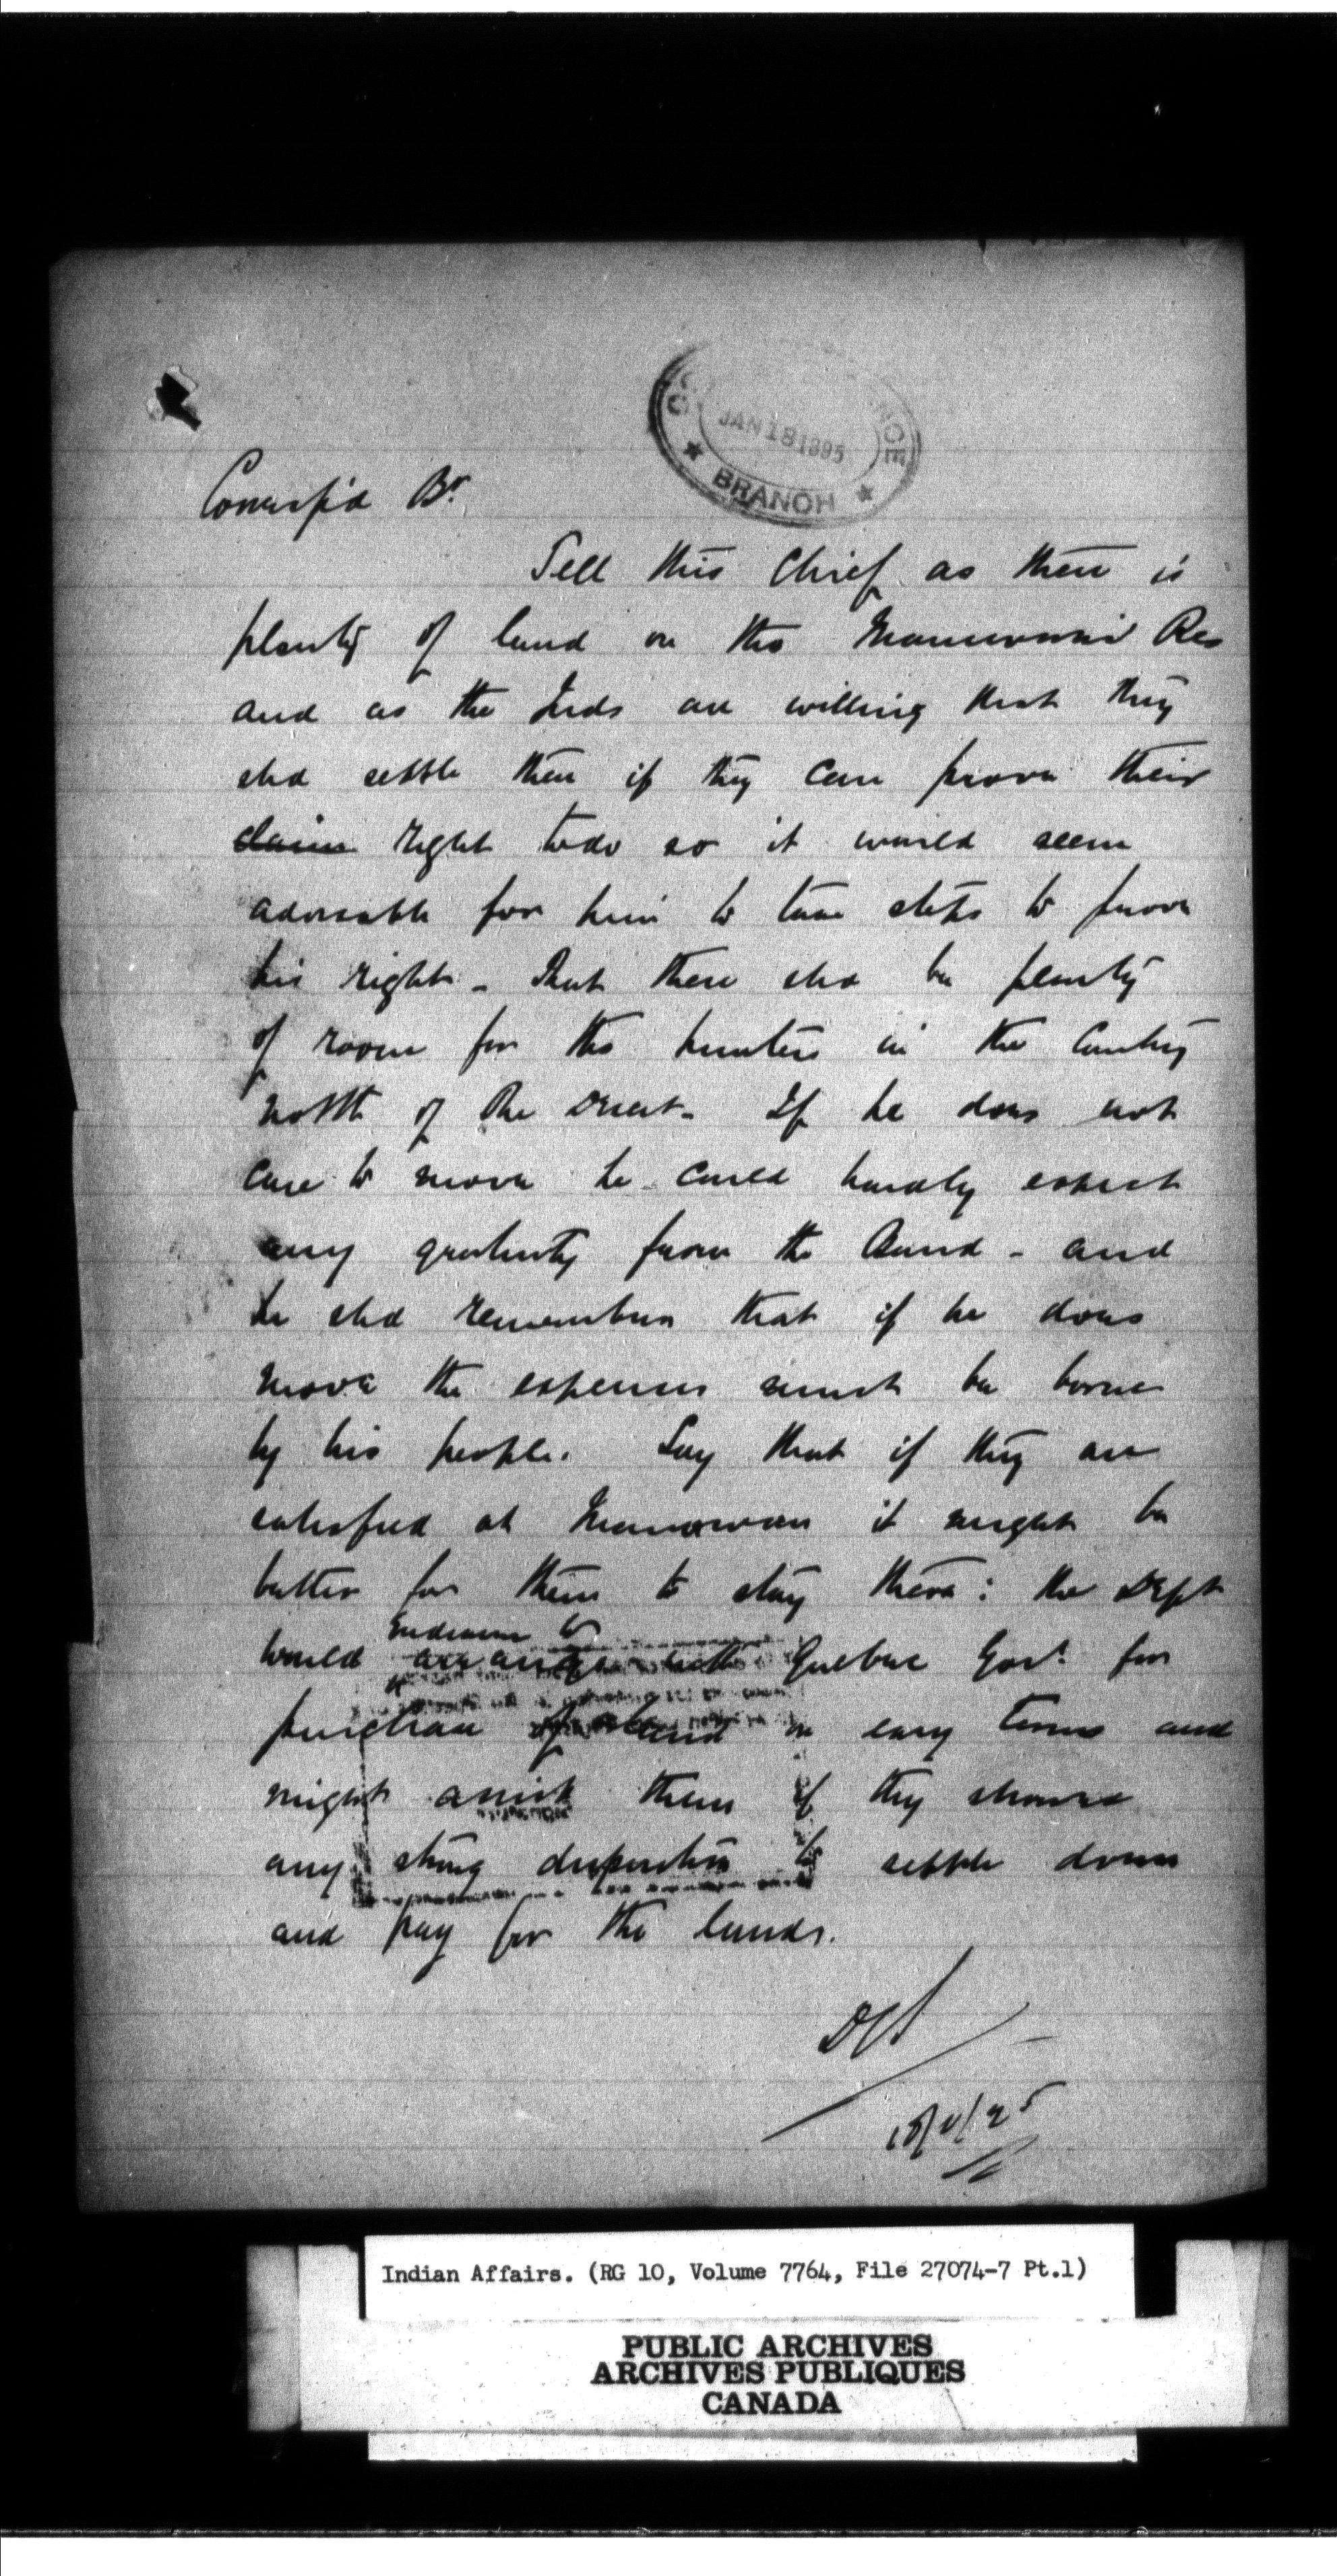 JAN 18 1895
BRANCH
Corresp'd Br.
Tell this Chief as there is
plenty of land on the Maniwaki Res
and as the Inds are willing that they
shd settle there if they can prove their
claim right to do so it would seem
advisable for him to take steps to prove
his right - That there shd be plenty
of room for the hunters in the Country
north of the Desert - If he does not
care to move he could hardly expect
any gratuity from the Band - and
he shd remember that if he does
move the expenses must be borne
by his people. Say that if they are
satisfied at Manowan it might be
better for them to stay there: the Dept
Endeavour to
would arrange with Quebec Govt for
purchase of land on easy terms and
might assist them if they showed
any strong disposition to settle down
and pay for the lands.
DCS
18/1/95
Indian Affairs. (RG 10, Volume 7764, File 27074-7 Pt.1)
PUBLIC ARCHIVES
ARCHIVES PUBLIQUES
CANADA